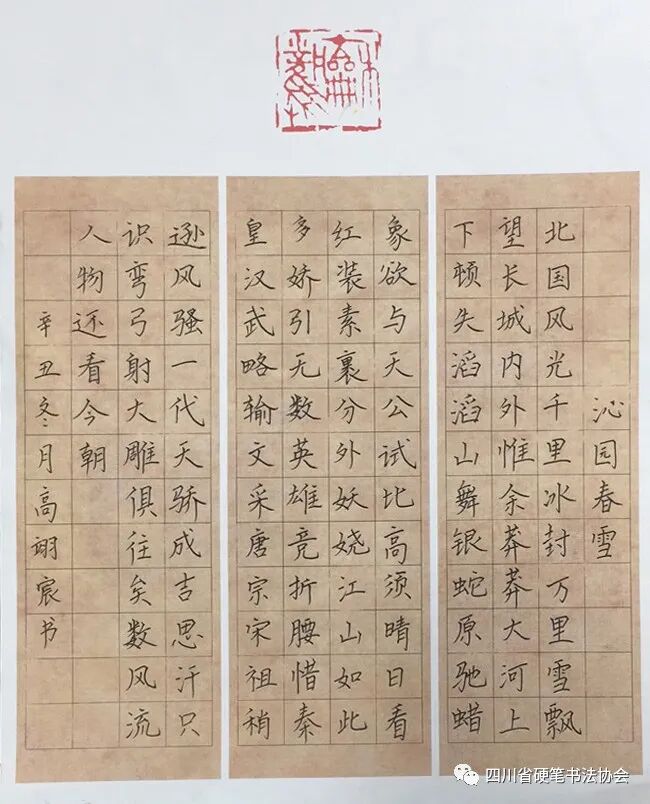 沁园春雪
北国风光千里冰封万里雪飘
望长城内外惟余莽莽大河上
下顿失滔滔山舞银蛇原驰蜡
象欲与天公试比高须晴日看
红装素裹分外妖娆江山如此
多娇引无数英雄竞折腰惜秦
皇汉武略输文采唐宗宋祖稍
逊风骚一代天骄成吉思汗只
识弯弓射大雕俱往矣数风流
人物还看今朝
辛丑冬月高翊宸书
四川省硬笔书法协会